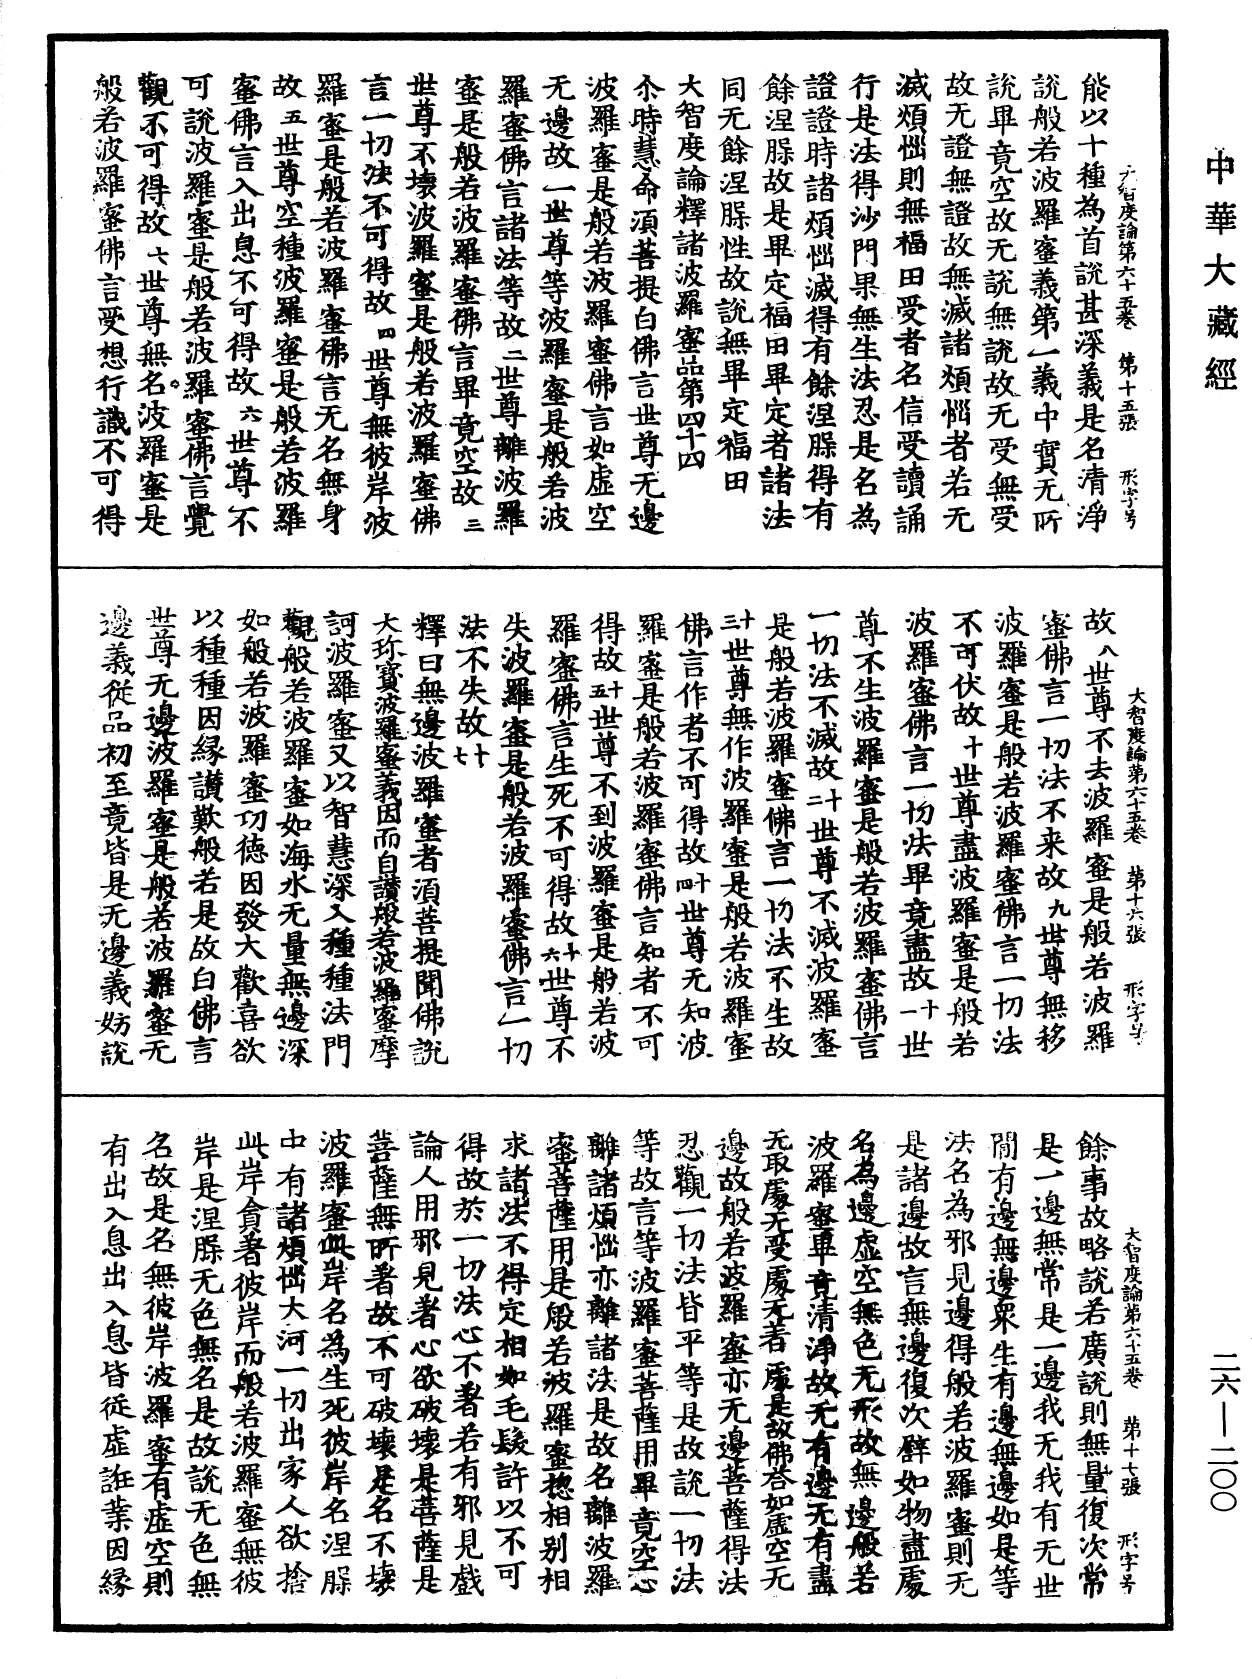 中華大藏經
大智度論第六十五卷　第十五張　形字号
能以十種為首說甚深義是名清淨
說般若波羅蜜義第一義中實无所
說畢竟空故无說無說故无受無受
故无證無證故無滅諸煩惱者若无
滅煩惱則無福田受者名信受讀誦
行是法得沙門果無生法忍是名為
證證時諸煩惱滅得有餘涅槃得有
餘涅槃故是畢定福田畢定者諸法
同无餘涅槃性故說無畢定福田
大智度論釋諸波羅蜜品第四十四
尒時慧命須菩提白佛言世尊无邊
波羅蜜是般若波羅蜜佛言如虛空
无邊故一世尊等波羅蜜是般若波
羅蜜佛言諸法等故二世尊離波羅
蜜是般若波羅蜜佛言畢竟空故三
世尊不壞波羅蜜是般若波羅蜜佛
言一切法不可得故四世尊無彼岸波
羅蜜是般若波羅蜜佛言无名無身
故五世尊空種波羅蜜是般若波羅
蜜佛言入出息不可得故六世尊不
可說波羅蜜是般若波羅蜜佛言覺
觀不可得故七世尊無名波羅蜜是
般若波羅蜜佛言受想行識不可得
大智度論第六十五卷　第十六張　形字号
故八世尊不去波羅蜜是般若波羅
蜜佛言一切法不来故九世尊無移
波羅蜜是般若波羅蜜佛言一切法
不可伏故十世尊盡波羅蜜是般若
波羅蜜佛言一切法畢竟盡故十一世
尊不生波羅蜜是般若波羅蜜佛言
一切法不滅故十二世尊不滅波羅蜜
是般若波羅蜜佛言一切法不生故
十三世尊無作波羅蜜是般若波羅蜜
佛言作者不可得故十四世尊无知波
羅蜜是般若波羅蜜佛言知者不可
得故十五世尊不到波羅蜜是般若波
羅蜜佛言生死不可得故十六世尊不
失波羅蜜是般若波羅蜜佛言一切
法不失故十七
釋曰無邊波羅蜜者須菩提聞佛說
大珎寶波羅蜜義因而自讃般若波羅蜜摩
訶波羅蜜又以智慧深入種種法門
觀般若波羅蜜如海水无量無邊深
如般若波羅蜜功德因發大歡喜欲
以種種因緣讃歎般若是故白佛言
世尊无邊波羅蜜是般若波羅蜜无
邊義從品初至竟皆是无邊義妨說
大智度論第六十五卷　第十七張　形字号
餘事故略說若廣說則無量復次常
是一邊無常是一邊我无我有无世
間有邊無邊衆生有邊無邊如是等
法名為邪見邊得般若波羅蜜則无
是諸邊故言無邊復次譬如物盡處
名為邊虛空無色无形故無邊般若
波羅蜜畢竟清淨故无有邊无有盡
无取處无受處无著處是故佛荅如虛空无
邊故般若波羅蜜亦无邊菩薩得法
忍觀一切法皆平等是故說一切法
等故言等波羅蜜菩薩用畢竟空心
離諸煩惱亦離諸法是故名離波羅
蜜菩薩用是般若波羅蜜揔相別相
求諸法不得定相如毛髮許以不可
得故於一切法心不著若有邪見戲
論人用邪見著心欲破壞是菩薩是
菩薩無所著故不可破壞是名不壞
波羅蜜此岸名為生死彼岸名涅槃
中有諸煩惱大河一切出家人欲捨
此岸貪著彼岸而般若波羅蜜無彼
岸是涅槃无色無名是故說无色無
名故是名無彼岸波羅蜜有虛空則
有出入息出入息皆從虛誑業因緣
二六—二〇〇